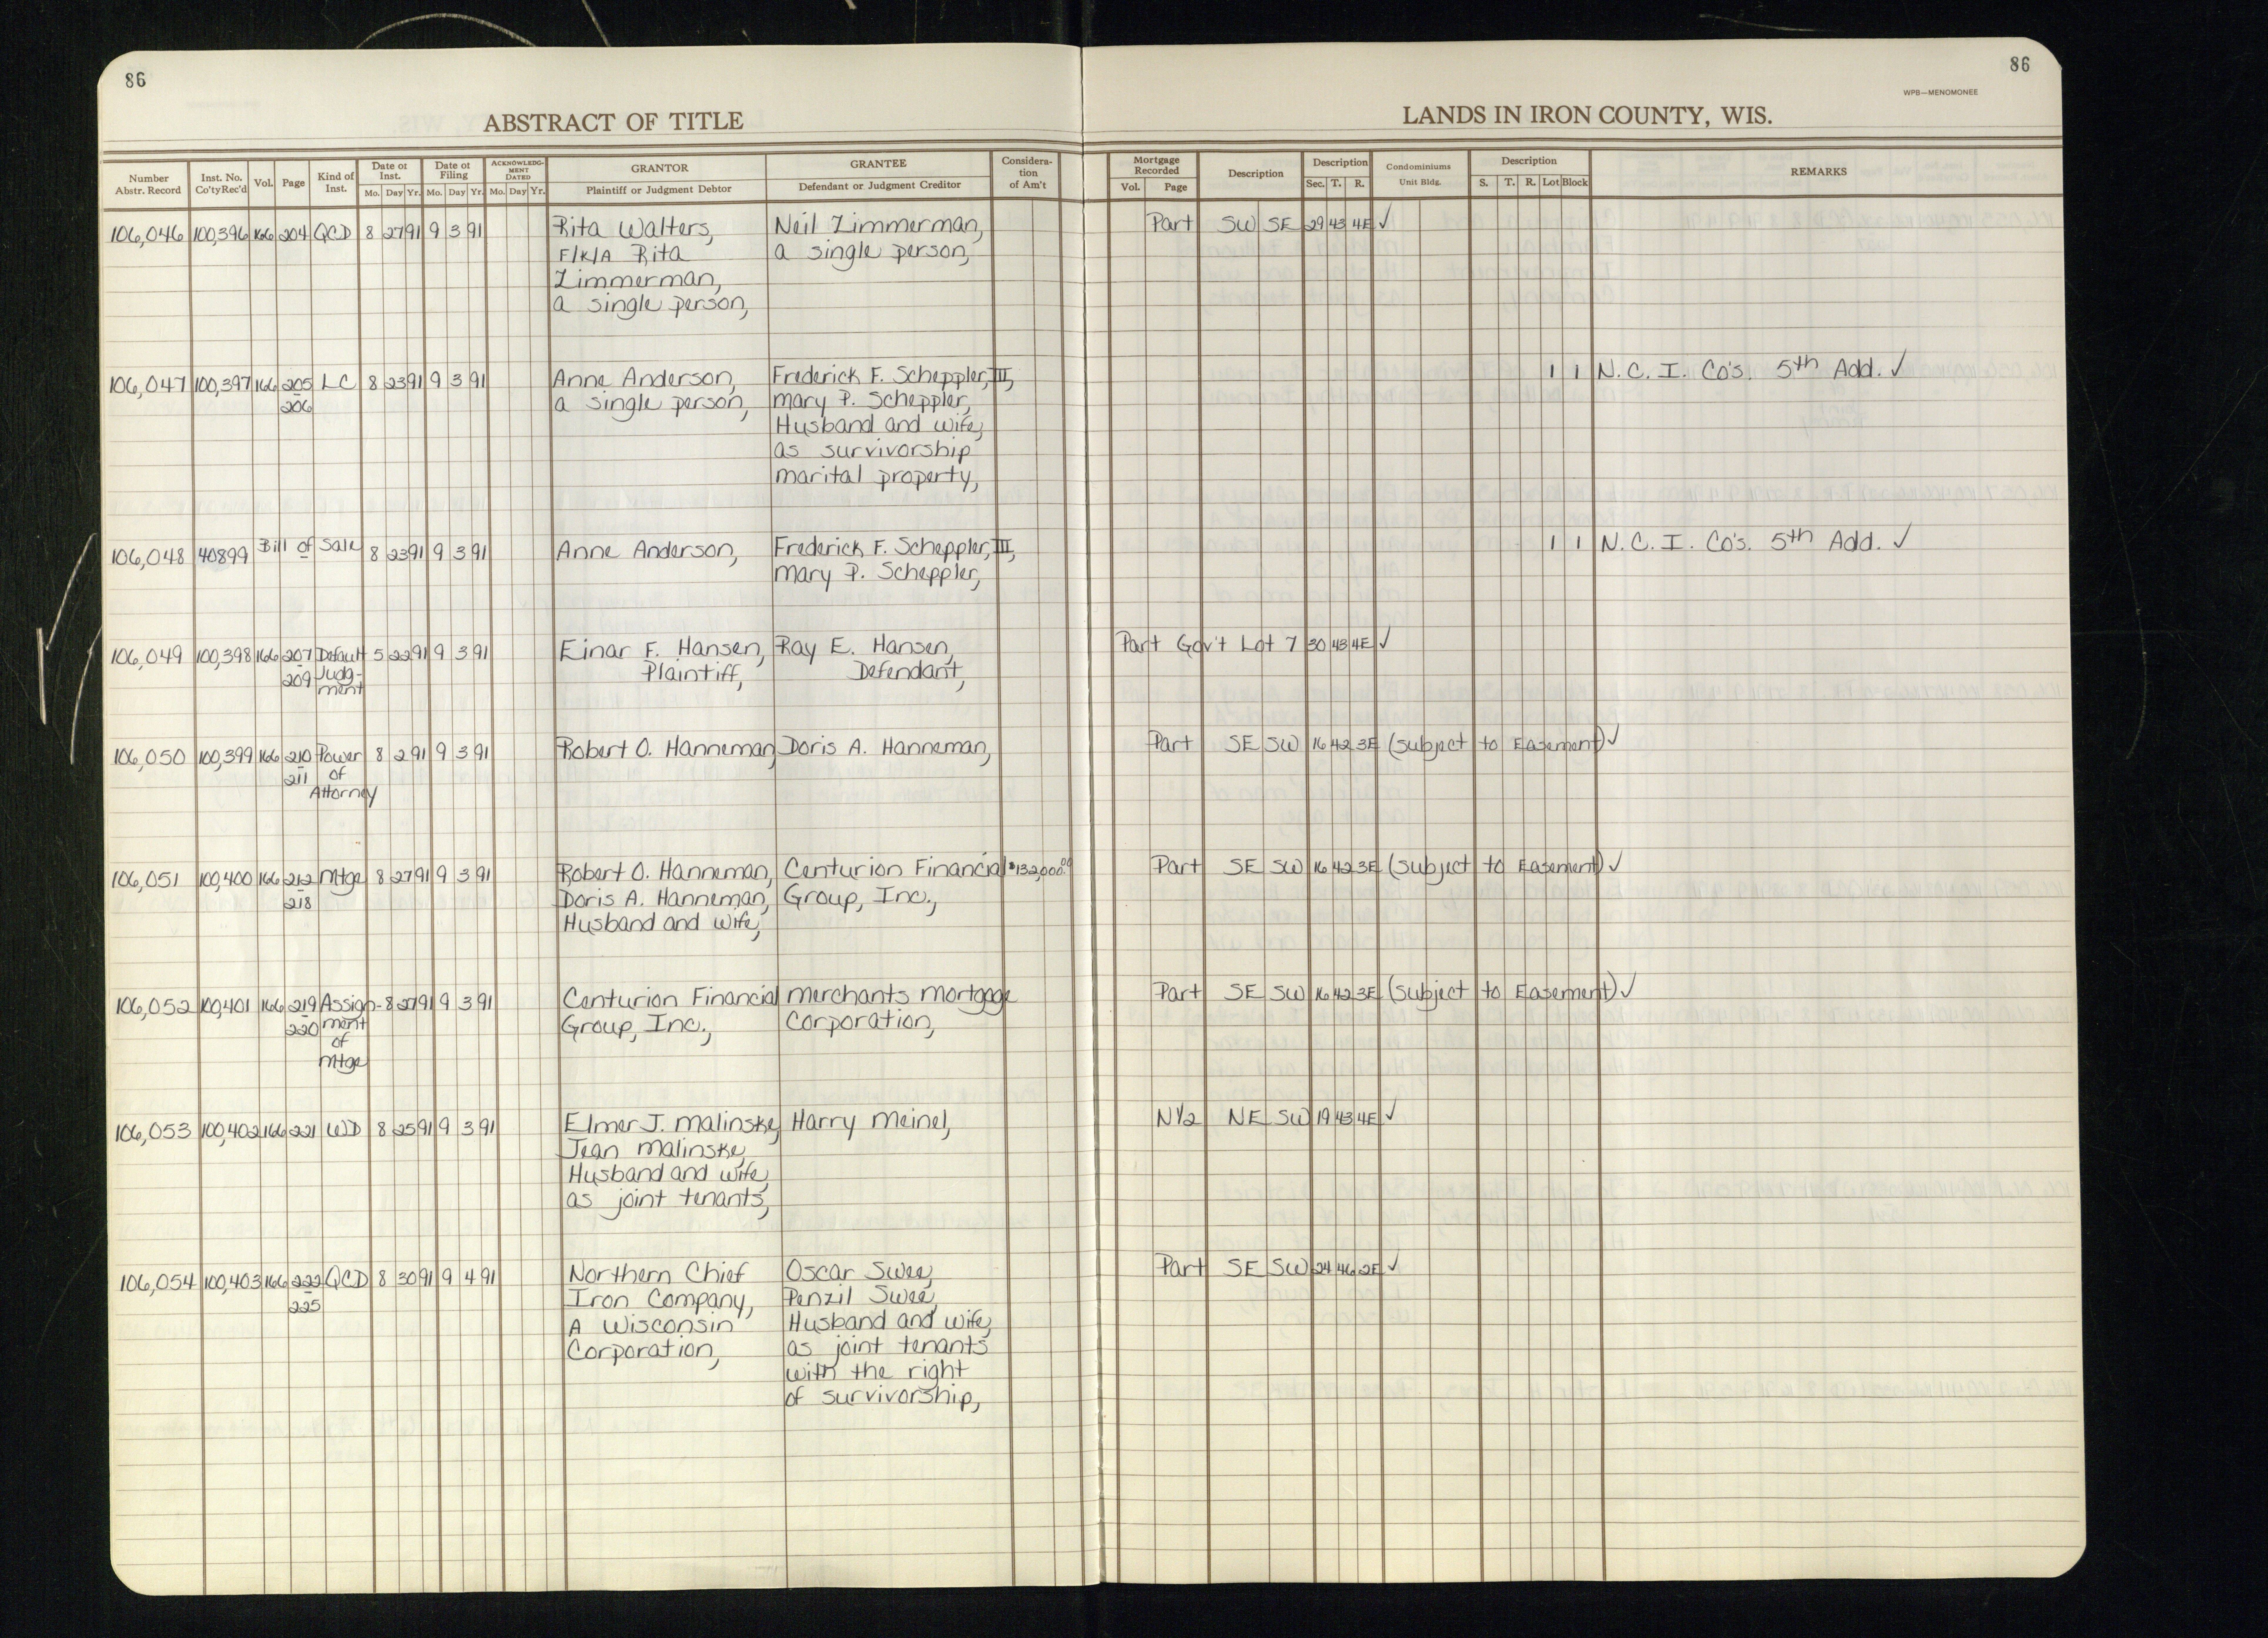 86
86
WPB—MENOMONEE
ABSTRACT OF TITLE
LANDS IN IRON COUNTY, WIS.
Number Abstr. Record
Inst. No. Co'ty Rec'd
Vol.
Page
Kind of Inst.
Date of Inst.
Mo. Day Yr.
Date of Filing
Mo. Day Yr.
ACKNOWLEDGMENT DATED
Mo. Day Yr.
GRANTOR
Plaintiff or Judgment Debtor
GRANTEE
Defendant or Judgment Creditor
Consideration of Am't
Mortgage Recorded
Vol. Page
Description
Description
Sec. T. R.
Condominiums
Unit Bldg.
Description
S. T. R. Lot Block
REMARKS
106,046 100,396 166 204 QCD 8 27 91 9 3 91 Rita Walters, Neil Zimmerman, Part SW SE 29 43 4E ✓
F/K/A Rita a single person,
Zimmerman,
a single person,
106,047 100,397 166 205 LC 8 23 91 9 3 91 Anne Anderson, Frederick F. Scheppler, III, 1 1 N.C.I. Co's. 5th Add. ✓
206 a single person, Mary P. Scheppler,
Husband and wife,
as survivorship
marital property,
106,048 40899 Bill of Sale 8 23 91 9 3 91 Anne Anderson, Frederick F. Scheppler, III, 1 1 N.C.I. Co's. 5th Add. ✓
Mary P. Scheppler,
106,049 100,398 166 207 Default 5 22 91 9 3 91 Einar F. Hansen, Ray E. Hansen, Part Gov't Lot 7 30 43 4E ✓
209 Judg- Plaintiff, Defendant,
ment
106,050 100,399 166 210 Power 8 2 91 9 3 91 Robert O. Hanneman, Doris A. Hanneman, Part SE SW 16 42 3E (Subject to Easement) ✓
211 of
Attorney
106,051 100,400 166 212 Mtge 8 27 91 9 3 91 Robert O. Hanneman, Centurion Financial $132,000.00 Part SE SW 16 42 3E (Subject to Easement) ✓
218 Doris A. Hanneman, Group, Inc.,
Husband and wife,
106,052 100,401 166 219 Assign- 8 27 91 9 3 91 Centurion Financial Merchants Mortgage Part SE SW 16 42 3E (Subject to Easement) ✓
220 ment Group, Inc., Corporation,
of
Mtge
106,053 100,402 166 221 WD 8 25 91 9 3 91 Elmer J. Malinske, Harry Meinel, N1/2 NE SW 19 43 4E ✓
Jean Malinske,
Husband and wife,
as joint tenants,
106,054 100,403 166 222 QCD 8 30 91 9 4 91 Northern Chief Oscar Swee, Part SE SW 24 46 2E ✓
225 Iron Company, Penzil Swee,
A Wisconsin Husband and wife,
Corporation, as joint tenants
with the right
of survivorship,